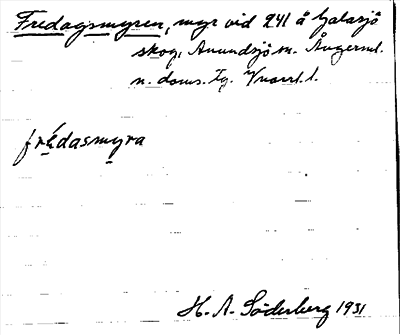 Fredagsmyren, myr vid 241 å Galasjö
skog, Anundsjö sn. Ångerml.
n. doms. Tg.
frédasmyra
H. A. Söderberg 1931